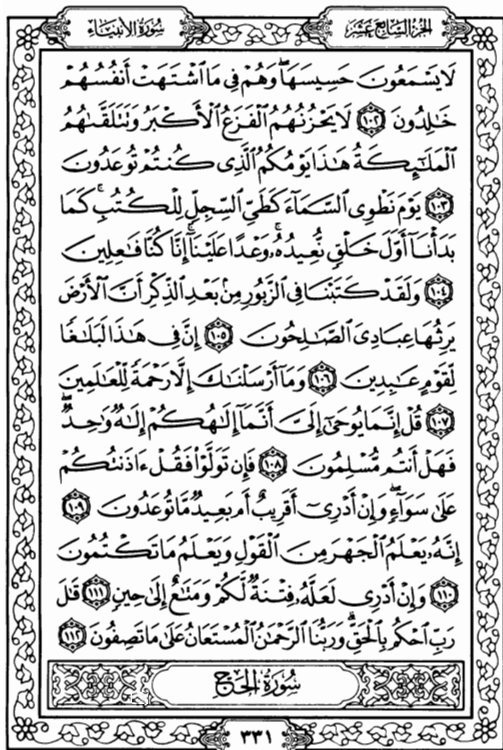 الجزء السابع عشر
سورة الأنبياء
لَا يَسْمَعُونَ حَسِيسَهَا ۖ وَهُمْ فِي مَا اشْتَهَتْ أَنفُسُهُمْ
خَالِدُونَ ﴿١٠٢﴾ لَا يَحْزُنُهُمُ الْفَزَعُ الْأَكْبَرُ وَتَتَلَقَّاهُمُ
الْمَلَائِكَةُ هَـٰذَا يَوْمُكُمُ الَّذِي كُنتُمْ تُوعَدُونَ
﴿١٠٣﴾ يَوْمَ نَطْوِي السَّمَاءَ كَطَيِّ السِّجِلِّ لِلْكُتُبِ ۚ كَمَا
بَدَأْنَا أَوَّلَ خَلْقٍ نُّعِيدُهُ ۚ وَعْدًا عَلَيْنَا ۚ إِنَّا كُنَّا فَاعِلِينَ
﴿١٠٤﴾ وَلَقَدْ كَتَبْنَا فِي الزَّبُورِ مِن بَعْدِ الذِّكْرِ أَنَّ الْأَرْضَ
يَرِثُهَا عِبَادِيَ الصَّالِحُونَ ﴿١٠٥﴾ إِنَّ فِي هَـٰذَا لَبَلَاغًا
لِّقَوْمٍ عَابِدِينَ ﴿١٠٦﴾ وَمَا أَرْسَلْنَاكَ إِلَّا رَحْمَةً لِّلْعَالَمِينَ
﴿١٠٧﴾ قُلْ إِنَّمَا يُوحَىٰ إِلَيَّ أَنَّمَا إِلَـٰهُكُمْ إِلَـٰهٌ وَاحِدٌ ۖ
فَهَلْ أَنتُم مُّسْلِمُونَ ﴿١٠٨﴾ فَإِن تَوَلَّوْا فَقُلْ آذَنتُكُمْ
عَلَىٰ سَوَاءٍ ۖ وَإِنْ أَدْرِي أَقَرِيبٌ أَم بَعِيدٌ مَّا تُوعَدُونَ ﴿١٠٩﴾
إِنَّهُ يَعْلَمُ الْجَهْرَ مِنَ الْقَوْلِ وَيَعْلَمُ مَا تَكْتُمُونَ
﴿١١٠﴾ وَإِنْ أَدْرِي لَعَلَّهُ فِتْنَةٌ لَّكُمْ وَمَتَاعٌ إِلَىٰ حِينٍ ﴿١١١﴾ قَالَ
رَبِّ احْكُم بِالْحَقِّ ۗ وَرَبُّنَا الرَّحْمَـٰنُ الْمُسْتَعَانُ عَلَىٰ مَا تَصِفُونَ ﴿١١٢﴾
سُورَةُ الْحَجِّ
٣٣١